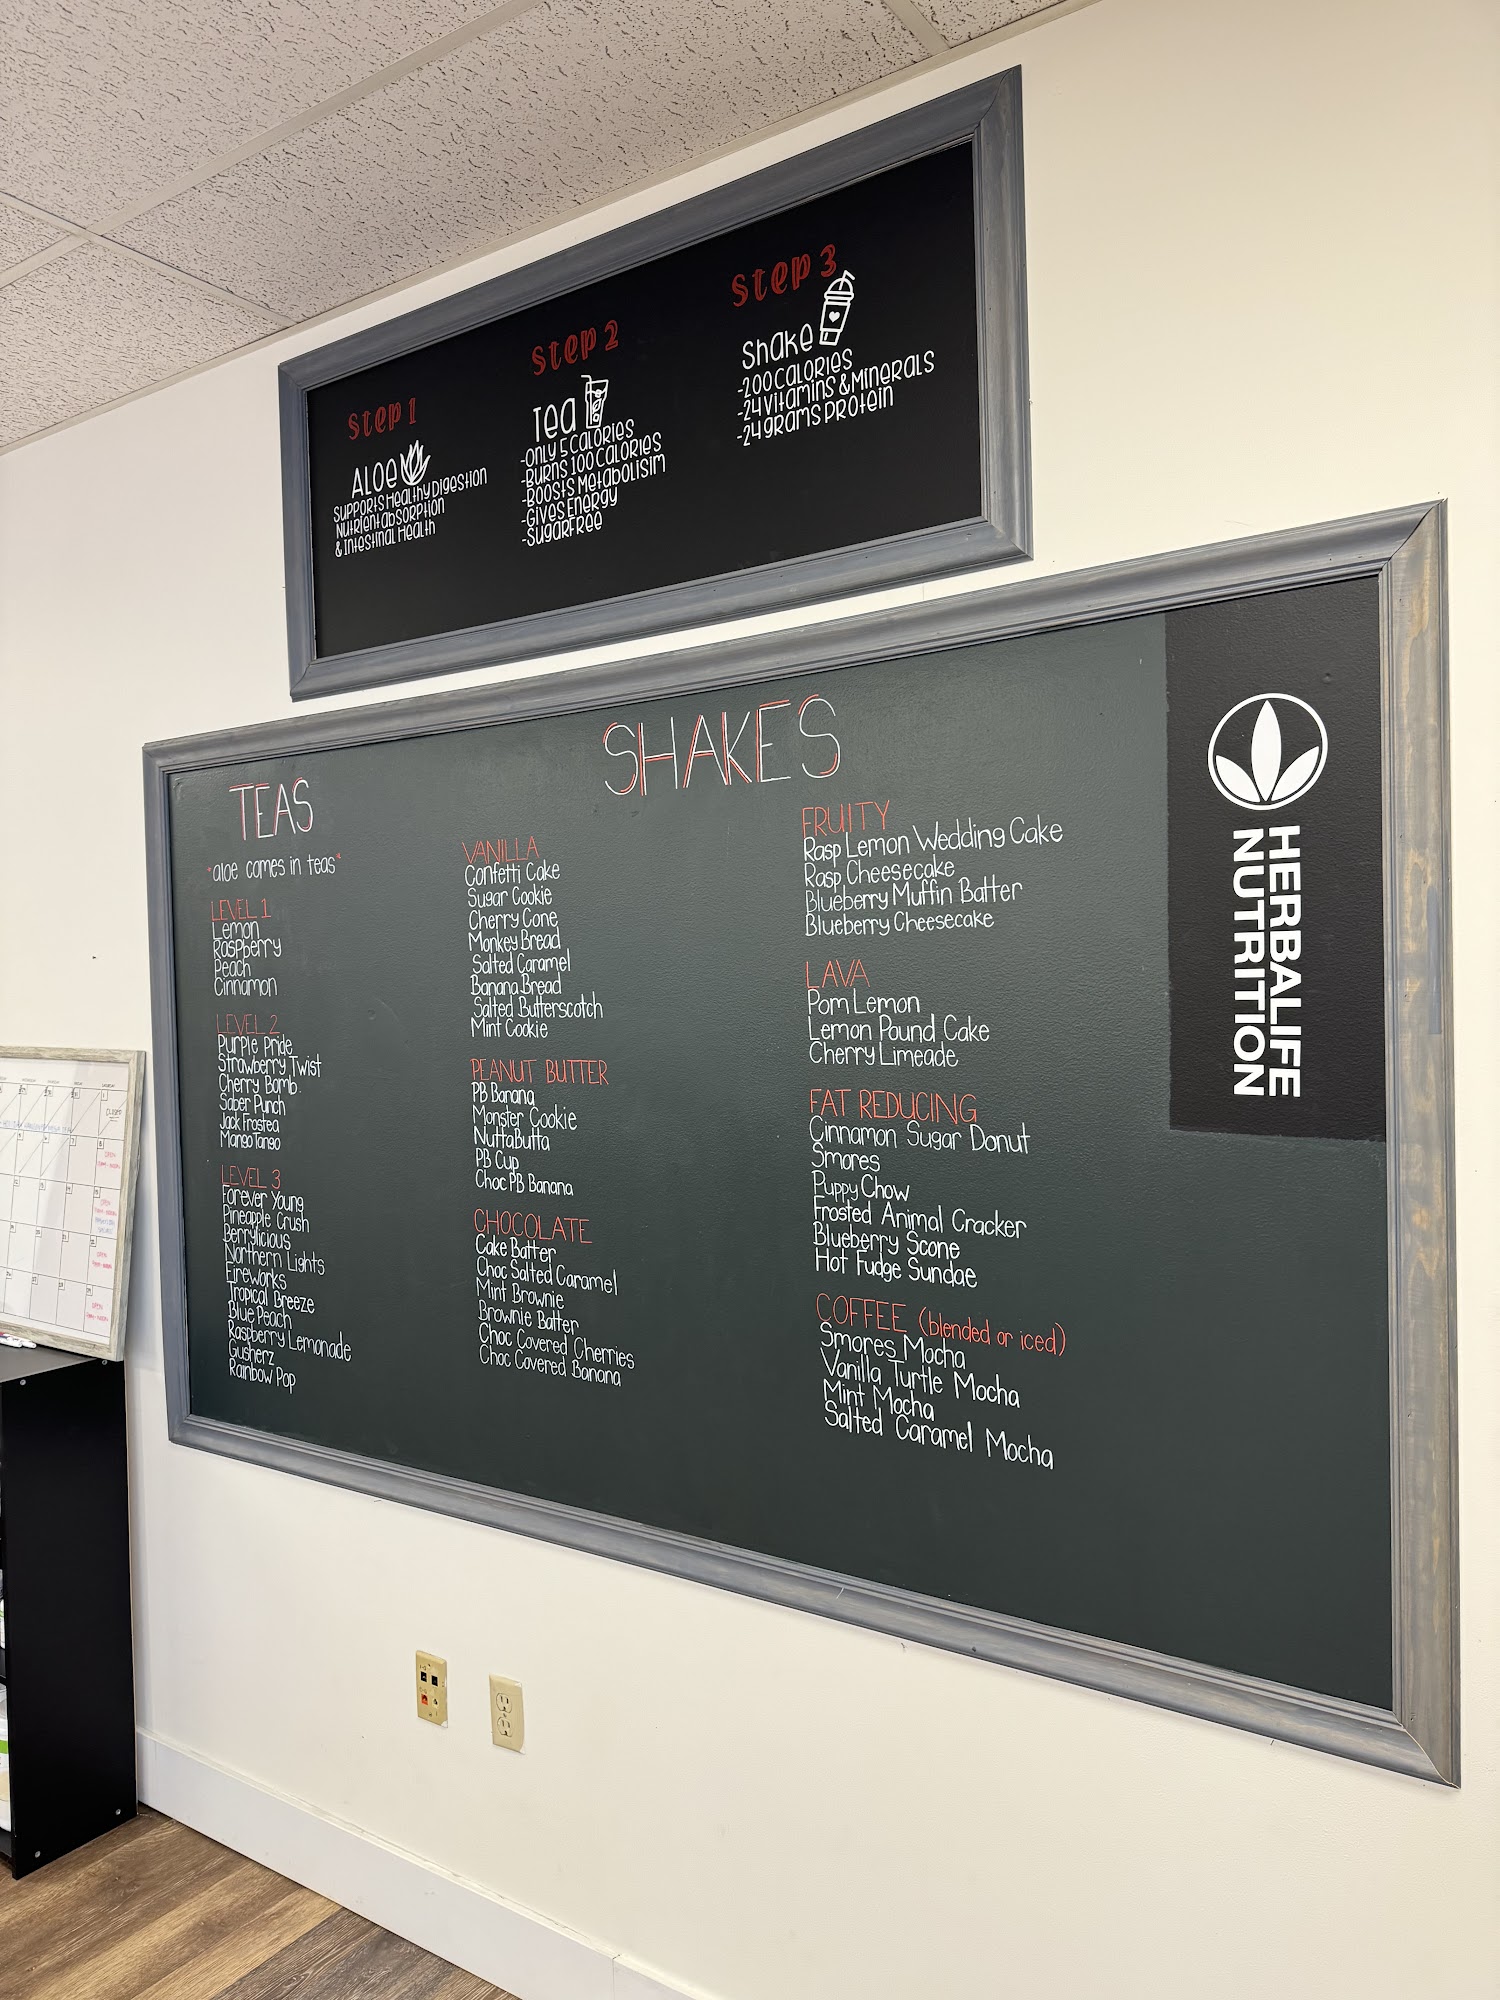 Step 1
Aloe
Supports Healthy Digestion
Nutrient absorption
& Intestinal Health
Step 2
Tea
-Only 5 Calories
-Burns 100 Calories
-Boosts Metabolisim
-Gives Energy
-Sugar Free
Step 3
Shake
-200 Calories
-24 Vitamins & Minerals
-24 grams Protein
TEAS
*aloe comes in teas*
LEVEL 1
Lemon
Raspberry
Peach
Cinnamon
LEVEL 2
Purple Pride
Strawberry Twist
Cherry Bomb.
Saber Punch
Jack Frostea
Mango Tango
LEVEL 3
Forever Young
Pineapple Crush
Berrylicious
Northern Lights
Fireworks
Tropical Breeze
Blue Peach
Raspberry Lemonade
Gusherz
Rainbow Pop
SHAKES
VANILLA
Confetti Cake
Sugar Cookie
Cherry Cone
Monkey Bread
Salted Caramel
Banana Bread
Salted Butterscotch
Mint Cookie
PEANUT BUTTER
PB Banana
Monster Cookie
NuttaButta
PB Cup
Choc PB Banana
CHOCOLATE
Cake Batter
Choc Salted Caramel
Mint Brownie
Brownie Batter
Choc Covered Cherries
Choc Covered Banana
FRUITY
Rasp Lemon Wedding Cake
Rasp Cheesecake
Blueberry Muffin Batter
Blueberry Cheesecake
LAVA
Pom Lemon
Lemon Pound Cake
Cherry Limeade
FAT REDUCING
Cinnamon Sugar Donut
Smores
Puppy Chow
Frosted Animal Cracker
Blueberry Scone
Hot Fudge Sundae
COFFEE (blended or iced)
Smores Mocha
Vanilla Turtle Mocha
Mint Mocha
Salted Caramel Mocha
HERBALIFE
NUTRITION